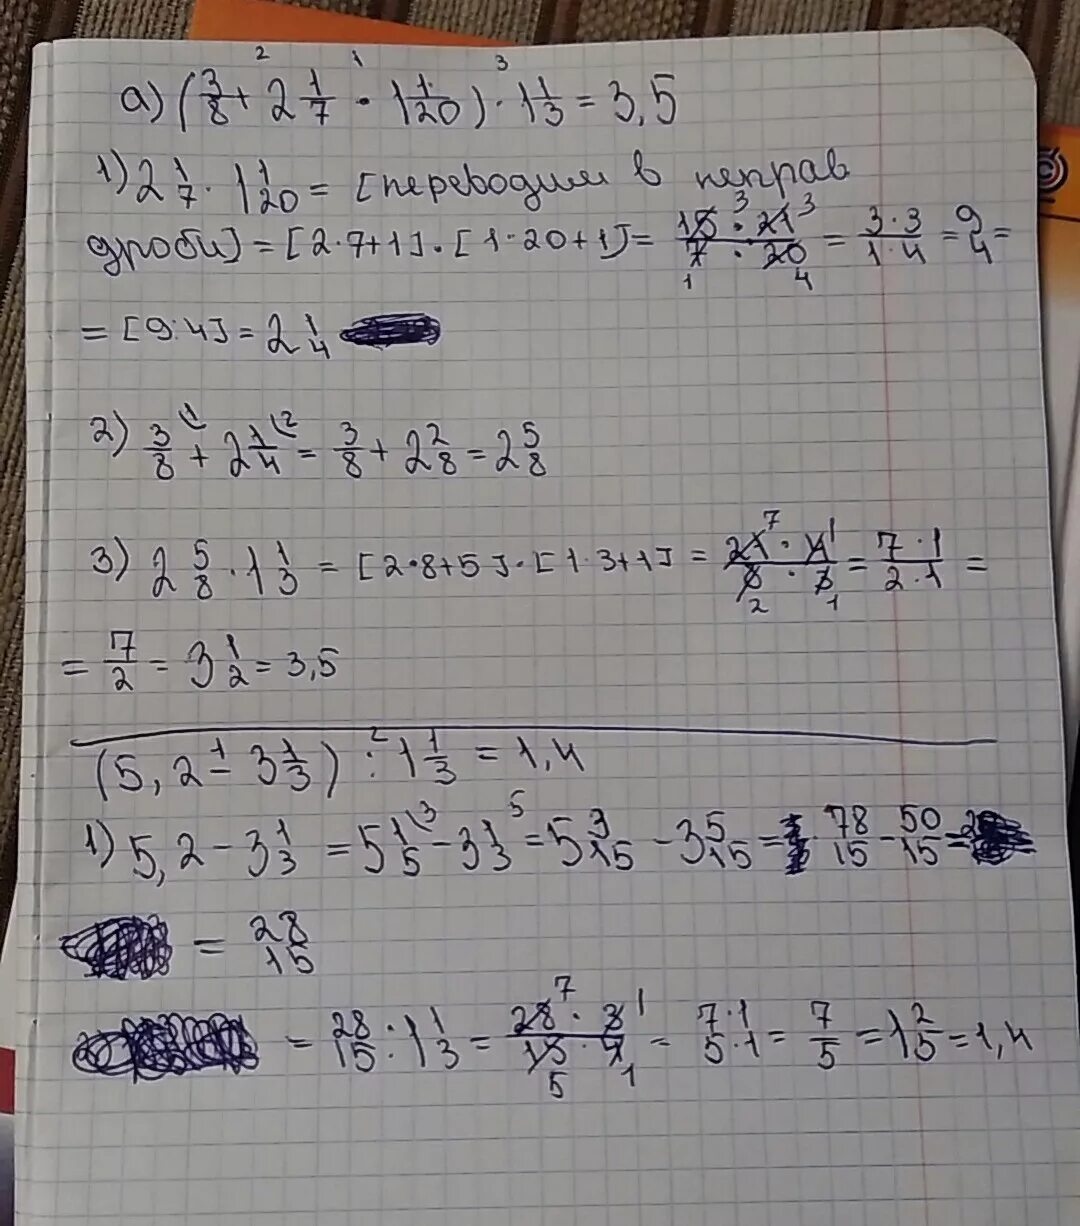 а) (3/8 + 2 1/7 · 1 1/20) · 1 1/3 = 3,5
1) 2 1/7 · 1 1/20 = [переводим в неправ
дроби] = [2·7+1]·[1·20+1] = 15·21/7·20 = 3·3/1·4 = 9/4 =
= [9:4] = 2 1/4
2) 3/8 + 2 1/4 = 3/8 + 2 2/8 = 2 5/8
3) 2 5/8 · 1 1/3 = [2·8+5]·[1·3+1] = 21·4/8·3 = 7·1/2·1 =
= 7/2 = 3 1/2 = 3,5
(5,2 - 3 1/3) : 1 1/3 = 1,4
1) 5,2 - 3 1/3 = 5 1/5 - 3 1/3 = 5 3/15 - 3 5/15 = 78/15 - 50/15 =
= 28/15
= 28/15 : 1 1/3 = 28·3/15·4 = 7·1/5·1 = 7/5 = 1 2/5 = 1,4